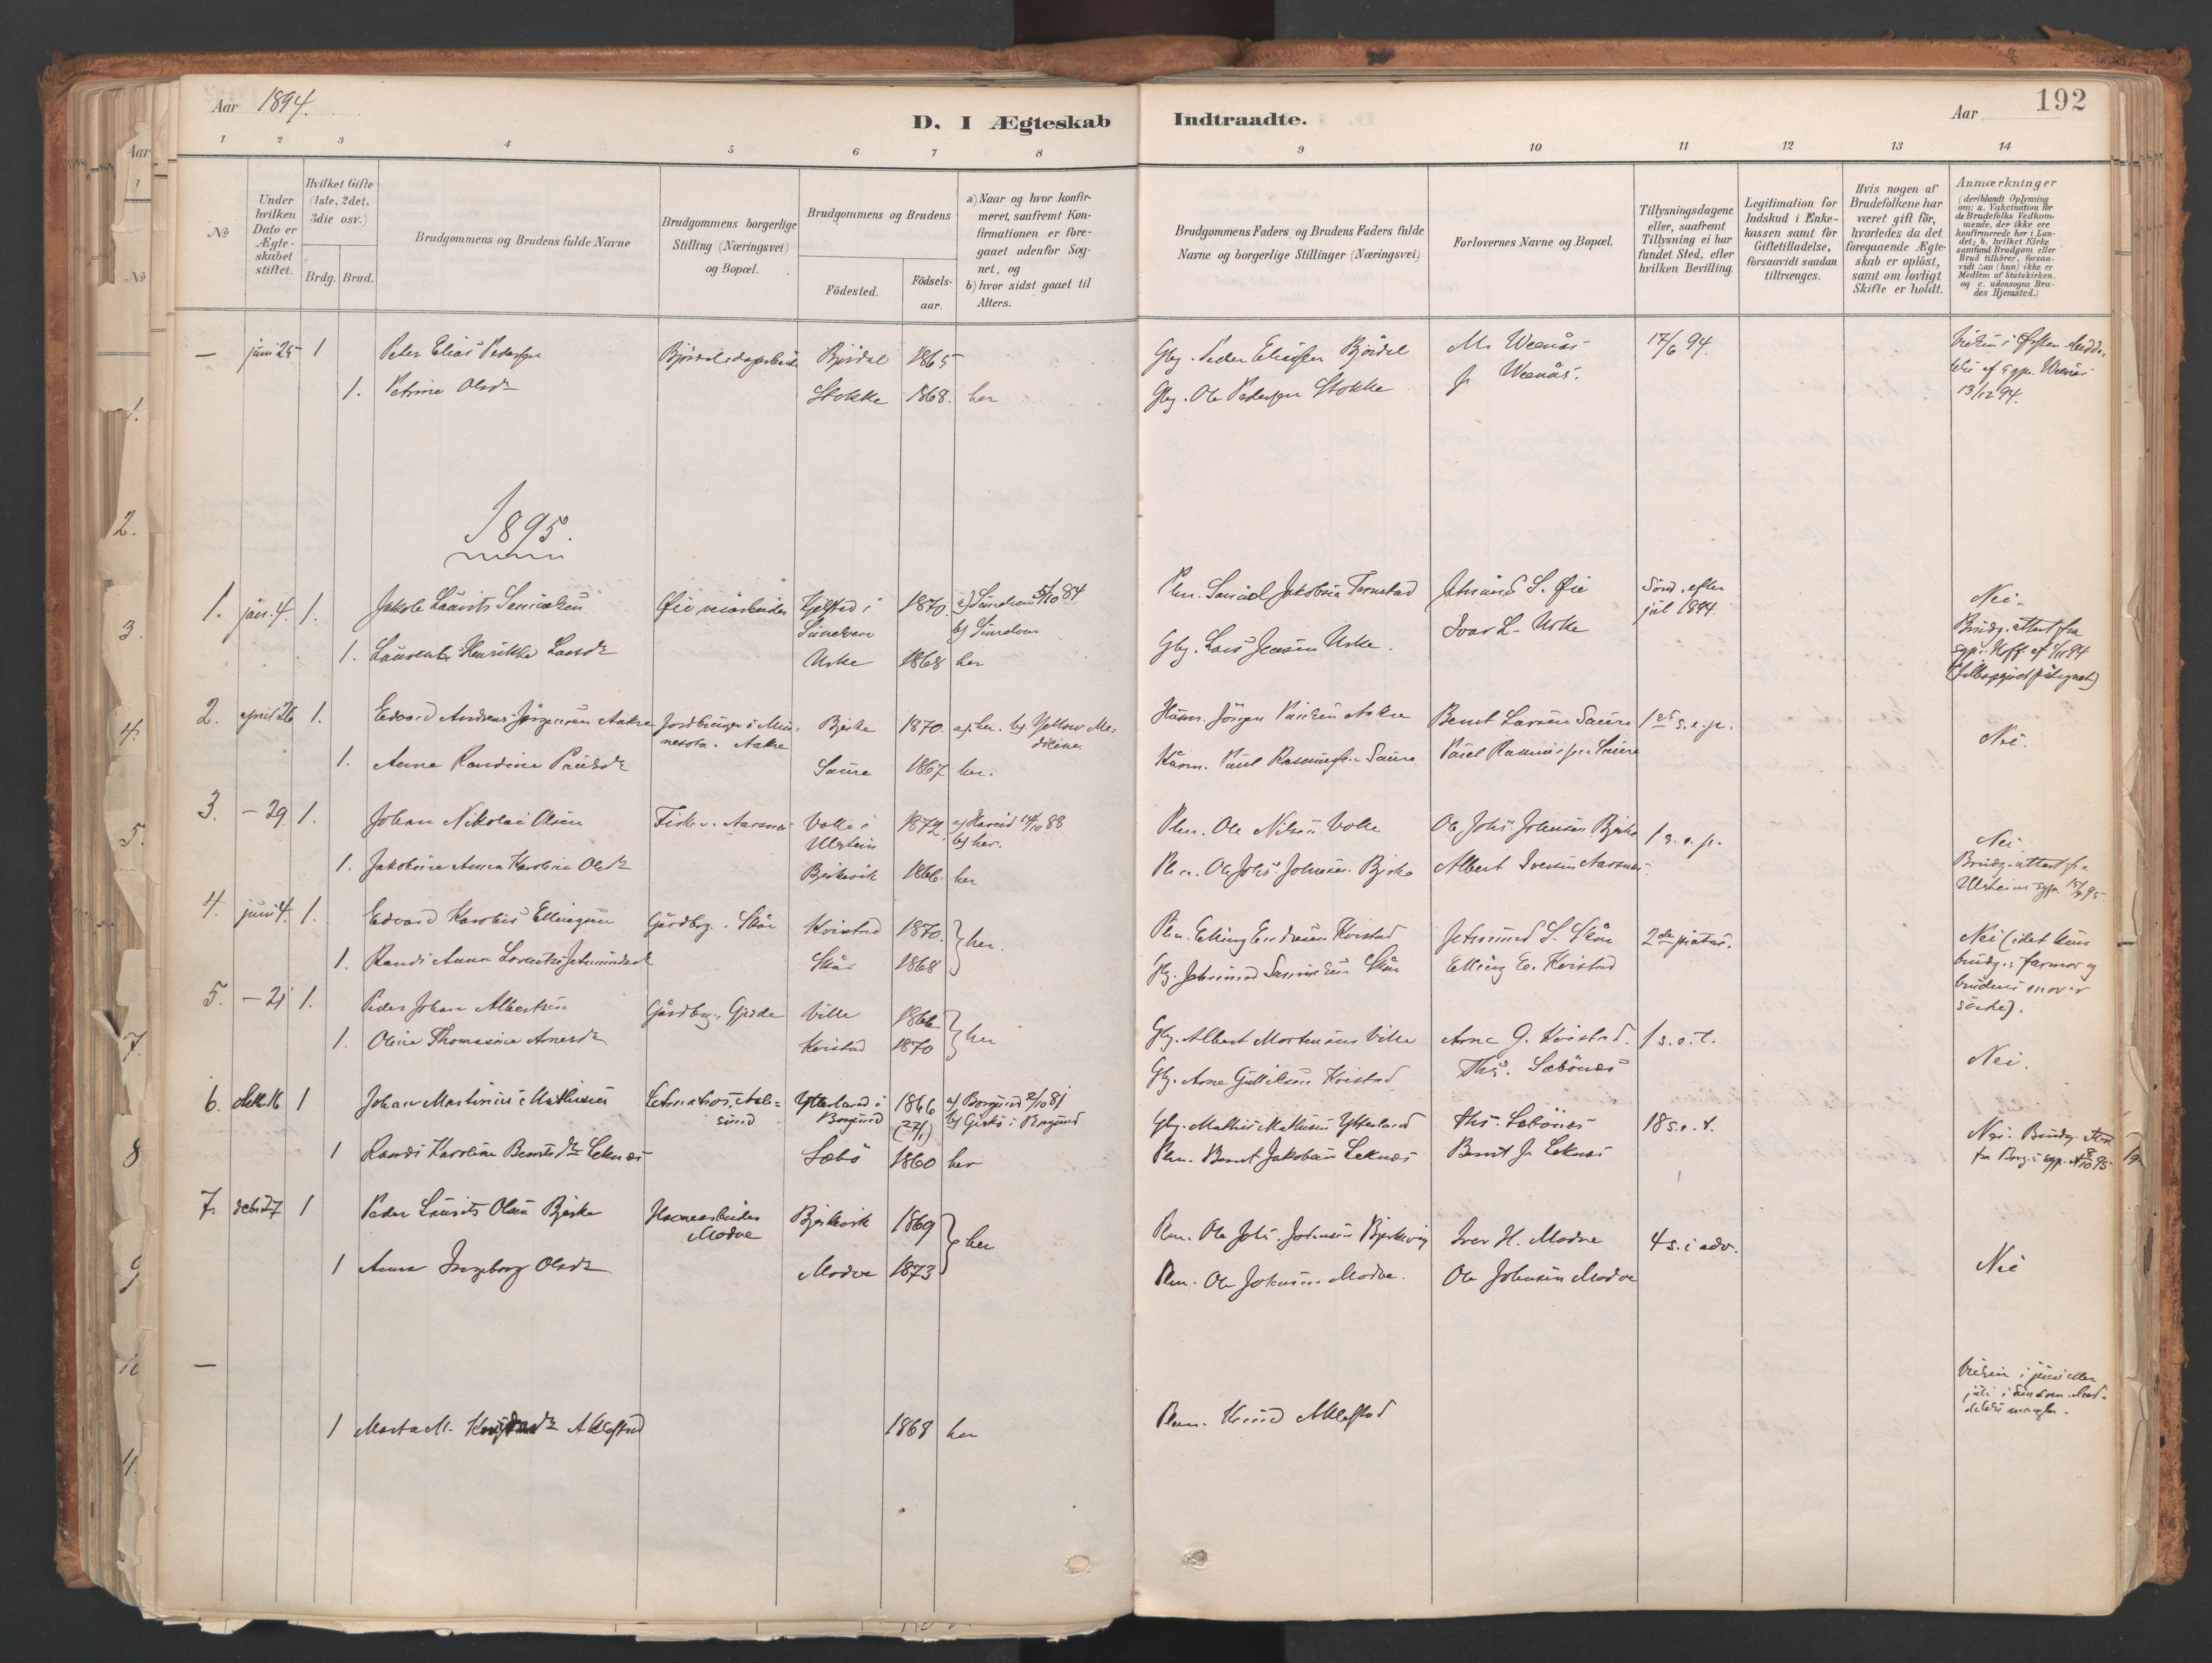 Aar 1894.
D. I Ægteskab Indtraadte.
Aar
192
1 2 3 4 5 6 7 8 9 10 11 12 13 14
No
Under hvilken Dato er Ægteskabet stiftet.
Hvilket Gifte (1ste, 2det, 3die osv.)
Brdg. Brud.
Brudgommens og Brudens fulde Navne
Brudgommens borgerlige Stilling (Næringsvei) og Bopæl.
Brudgommens og Brudens
Födested.
Födselsaar.
a) Naar og hvor konfirmeret, saafremt Konfirmationen er foregaaet udenfor Sognet, og
b) hvor sidst gaaet til Alters.
Brudgommens Faders og Brudens Faders fulde Navne og borgerlige Stillinger (Næringsvei)
Forlovernes Navne og Bopæl.
Tillysningsdagene eller, saafremt Tillysning ei har fundet Sted, efter hvilken Bevilling.
Legitimation for Indskud i Enkekassen samt for Giftetilladelse, forsaavidt saadan tiltrænges.
Hvis nogen af Brudefolkene har været gift för, hvorledes da det foregaaende Ægteskab er oplöst, samt om lovligt Skifte er holdt.
Anmærkninger
(deriblandt Oplysning om: a. Vakcination for de Brudefolks Vedkommende, der ikke ere konfirmerede her i Landet; b. hvilket Kirkesamfund Brudgom eller Brud tilhörer, forsaavidt han (hun) ikke er Medlem af Statskirken, og c. udensogns Brudes Hjemsted.)
— juni 25 1 Peter Elias Pedersen Bjørdal Bjørdal 1865 Gbg. Peder Eliassen Bjørdal M. Weenås 17/6 94.
1. Petrine Olsdr Stokke 1868. her Gbg. Ole Pedersen Stokke J. Weenås. 13/12 94.
1895.
1. jan. 4. 1. Jakob Laurits Samuelsen Øie veiarbeider 1870. 5/10 84 Plm. Samuel Jakobsen S. Øie Sønd. efter jul 1894. Nei.
1. Henrikke Larsdr Urke 1868 her Gbg. Lars Jensen Urke. Ivar L. Urke Brudg. attest fra
2. april 26 1. Edvard Andreas Jørgensen Aakre Jordbruger i Minnesota. Aakre Bjerke 1870. a) her. b) Yellow Medicine Jörgen Aakre Bernt Larsen Saure 1st s. e. p. Nei.
1. Anne Randine Paulsdr Saure 1867 her. Paul Rasmussen Saure Paul Rasmussen Saure
3. — 29 1. Johan Nikolai Olsen Fisker. Aarsnes Volle i Ulstein 1872 a) Hareid 14/10 88 b) her. Plm. Ole Nilsen Volle Ole Johs. Johnsen Bjerke 1 s. e. p. Nei.
1. Jakobine Anna Karoline Olsdr Bjerkevik 1866 her Plm. Ole Johs. Johnsen Bjerke Albert Iversen Aarsnes Brudg. attest fra Ulstein
4. juni 4. 1. Edvard Karolius Ellingsen Gårdbrg. Skår Kvistad 1870. her. Plm. Elling Endresen Kvistad Jetmund S. Skår 2den Nei (idet kun brudg.s farmor og brudens mor er
1. Randi Anna Jetmundsdr Skår 1868 Gbg. Jetmund Skår Elling E. Kvistad
5. — 21 1. Peder Johan Albertsen Gårdbrg. Gjerde Ville 1866 her Gbg. Albert Mortensen Ville Arne G. Kvistad. 1 s. e. t. Nei.
1. Oline Thomasine Arnesdr Kvistad 1870 Gbg. Arne Gulliksen Kvistad Ths. Sæbönes
6. 16 1 Johan Martinus Mathisen Aalesund Ytterland i Borgund 1866 (27/1) a) Borgund 2/10 81 b) Giske i Borgund Gbg. Mathis Ytterland Ths. Sæbönes 18 s. e. t. Nei. Brudg. attest
1 Randi Karoline Berntsdr Leknes Sæbö 1860 her Plm. Bernt Jakobsen Leknes Bernt J. Leknes fra Borg. sgp. af 8/10 95
7. 27 1 Peder Laurits Olsen Bjerke Modve Bjerkevik 1869 her Plm. Ole Johs. Johnsen Bjerkevig Iver H. Modve 4 s. i adv. Nei
1 Anna Ingeborg Olsdr Modve 1873 Plm. Ole Johnsen Modve. Ole Johnsen Modve
—
1 Marta M. 1868 her Knud